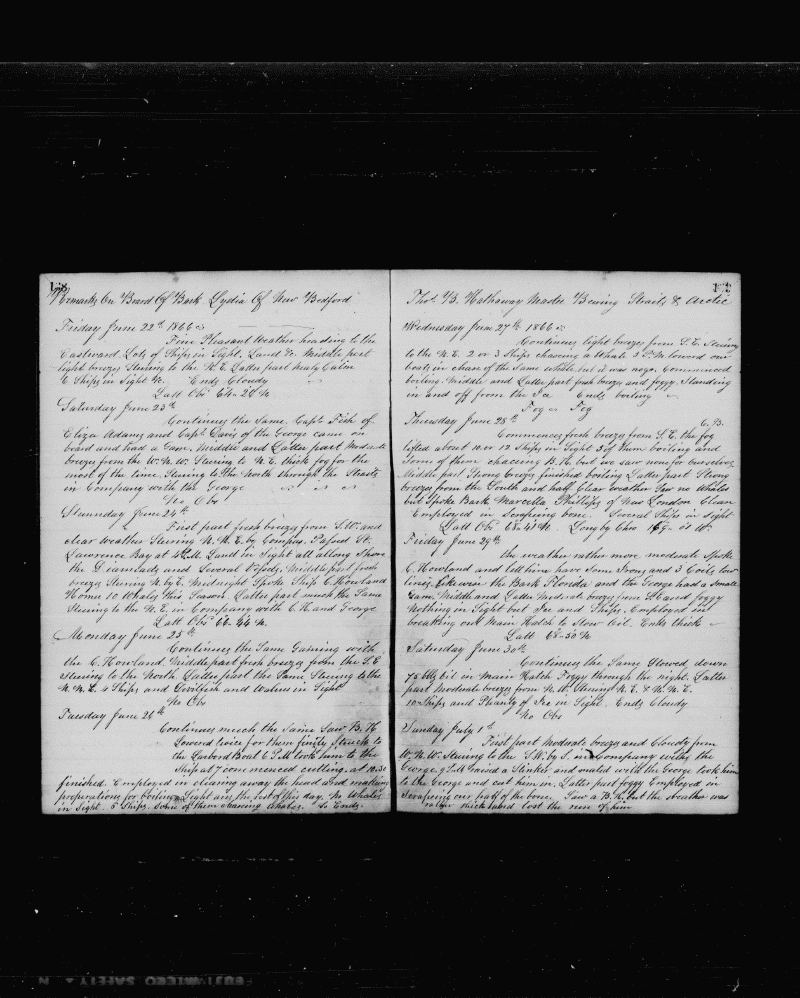 138
Remarks On Board Of Bark Lydia Of New Bedford
Friday June 22d 1866
Fine Pleasant Weather heading to the
Eastward Lots of Ships in Sight, Land &c. Middle part
light breezes Stearing to the N.E. Latter part nearly Calm
6 Ships in Sight &c. Ends Cloudy
Latt Obs 64-26 N
Saturday June 23d
Continues the Same. Capt Fish of
Eliza Adams and Capt Davis of the George came on
board and had a Gam. Middle and Latter part Moderate
breezes from the W.N.W. Stearing to N.E. thick fog for the
most of the time. Stearing to the North through the Straits
in Company with the George
No Obs
Sunday June 24th
First part fresh breezes from S.W. and
clear weather Stearing N.N.E. by Compass. Passed St.
Lawrence Bay at 4 P.M. Land in Sight all along Shore
the Diamiads and Several Vessels, Middle part fresh
breezes Stearing N. by E. Midnight Spoke Ship C. Howland
Homer 10 Whales this Season. Latter part much the Same
Stearing to the N.E. in Company with C.H. and George
Latt Obs 66-44 N.
Monday June 25th
Continues the Same Gaming with
the C. Howland. Middle part fresh breezes from the S.E
Stearing to the North Latter part the Same. Stearing to the
N.N.E. 4 Ships and Devilfish and Walrus in Sight
No Obs
Tuesday June 26th
Continues much the Same Saw B.H
Lowered twice for them finely Struck to
the Larbord Boat 6 P.M took him to the
Ship at 7 commenced cutting. at 10.30
finished. Employed in clearing away the head and making
preparations for boiling. Light airs the rest of this day. No Whales
in Sight. 5 Ships. Some of them chasing Whales. So Ends.
Thos. B. Hathaway Master Bearing Straits & Arctic
Wednesday June 27th 1866
Continues light breezes from S.E. Stearing
to the N.E. 2 or 3 Ships chasing a Whale 3 P.M. lowerd our
boats in chase of the Same whale but it was no go. Commenced
boiling. Middle and Latter part fresh breeze and foggy. Standing
in and off from the Ice Ends boiling
Fog Fog
Thursday June 28th C.B.
Commences fresh breezes from S.E. the fog
lifted about 10 or 12 Ships in Sight 3 of them boiling and
Some of them chacing B.H. but we saw none for ourselves
Middle part Strong breezes finished boiling Latter part Strong
breezes from the South and half Clear weather Saw no Whales
but Spoke Bark Marcella Phillips of New London Clean
Employed in Scraping bone. Several Ships in Sight
Latt Obs 68-41 N. Long by Chro 169-01 W.
Friday June 29th
the weather rather more moderate Spoke
C. Howland and let him have Some Irons and 3 Coils tow
lines. Likewise the Bark Florida and the George had a Small
Gam. Middle and Latter Moderate breezes from S.E and foggy
Nothing in Sight but Ice and Ships. Employed in
breaking out Main Hatch to Stow Oil. Ends thick
Latt 68-50 N
Saturday June 30th
Continues the Same Stowed down
75 bbls Oil in Main Hatch Foggy through the night. Latter
part Moderate breezes from N.W. Stearing N.E. & N.N.E.
10 Ships and Plenty of Ice in Sight. Ends Cloudy
No Obs
Sunday July 1st
First part Moderate breeze and Cloudy from
W.N.W. Stearing to the S.W. by S. in Company withe the
George. 9 P.M raised a Stinker and mated with the George took him
to the George and cut him in. Latter part foggy Employed in
Scrapeing our part of the bone. Saw a B.H. but the weather was
rather thick and lost the run of him